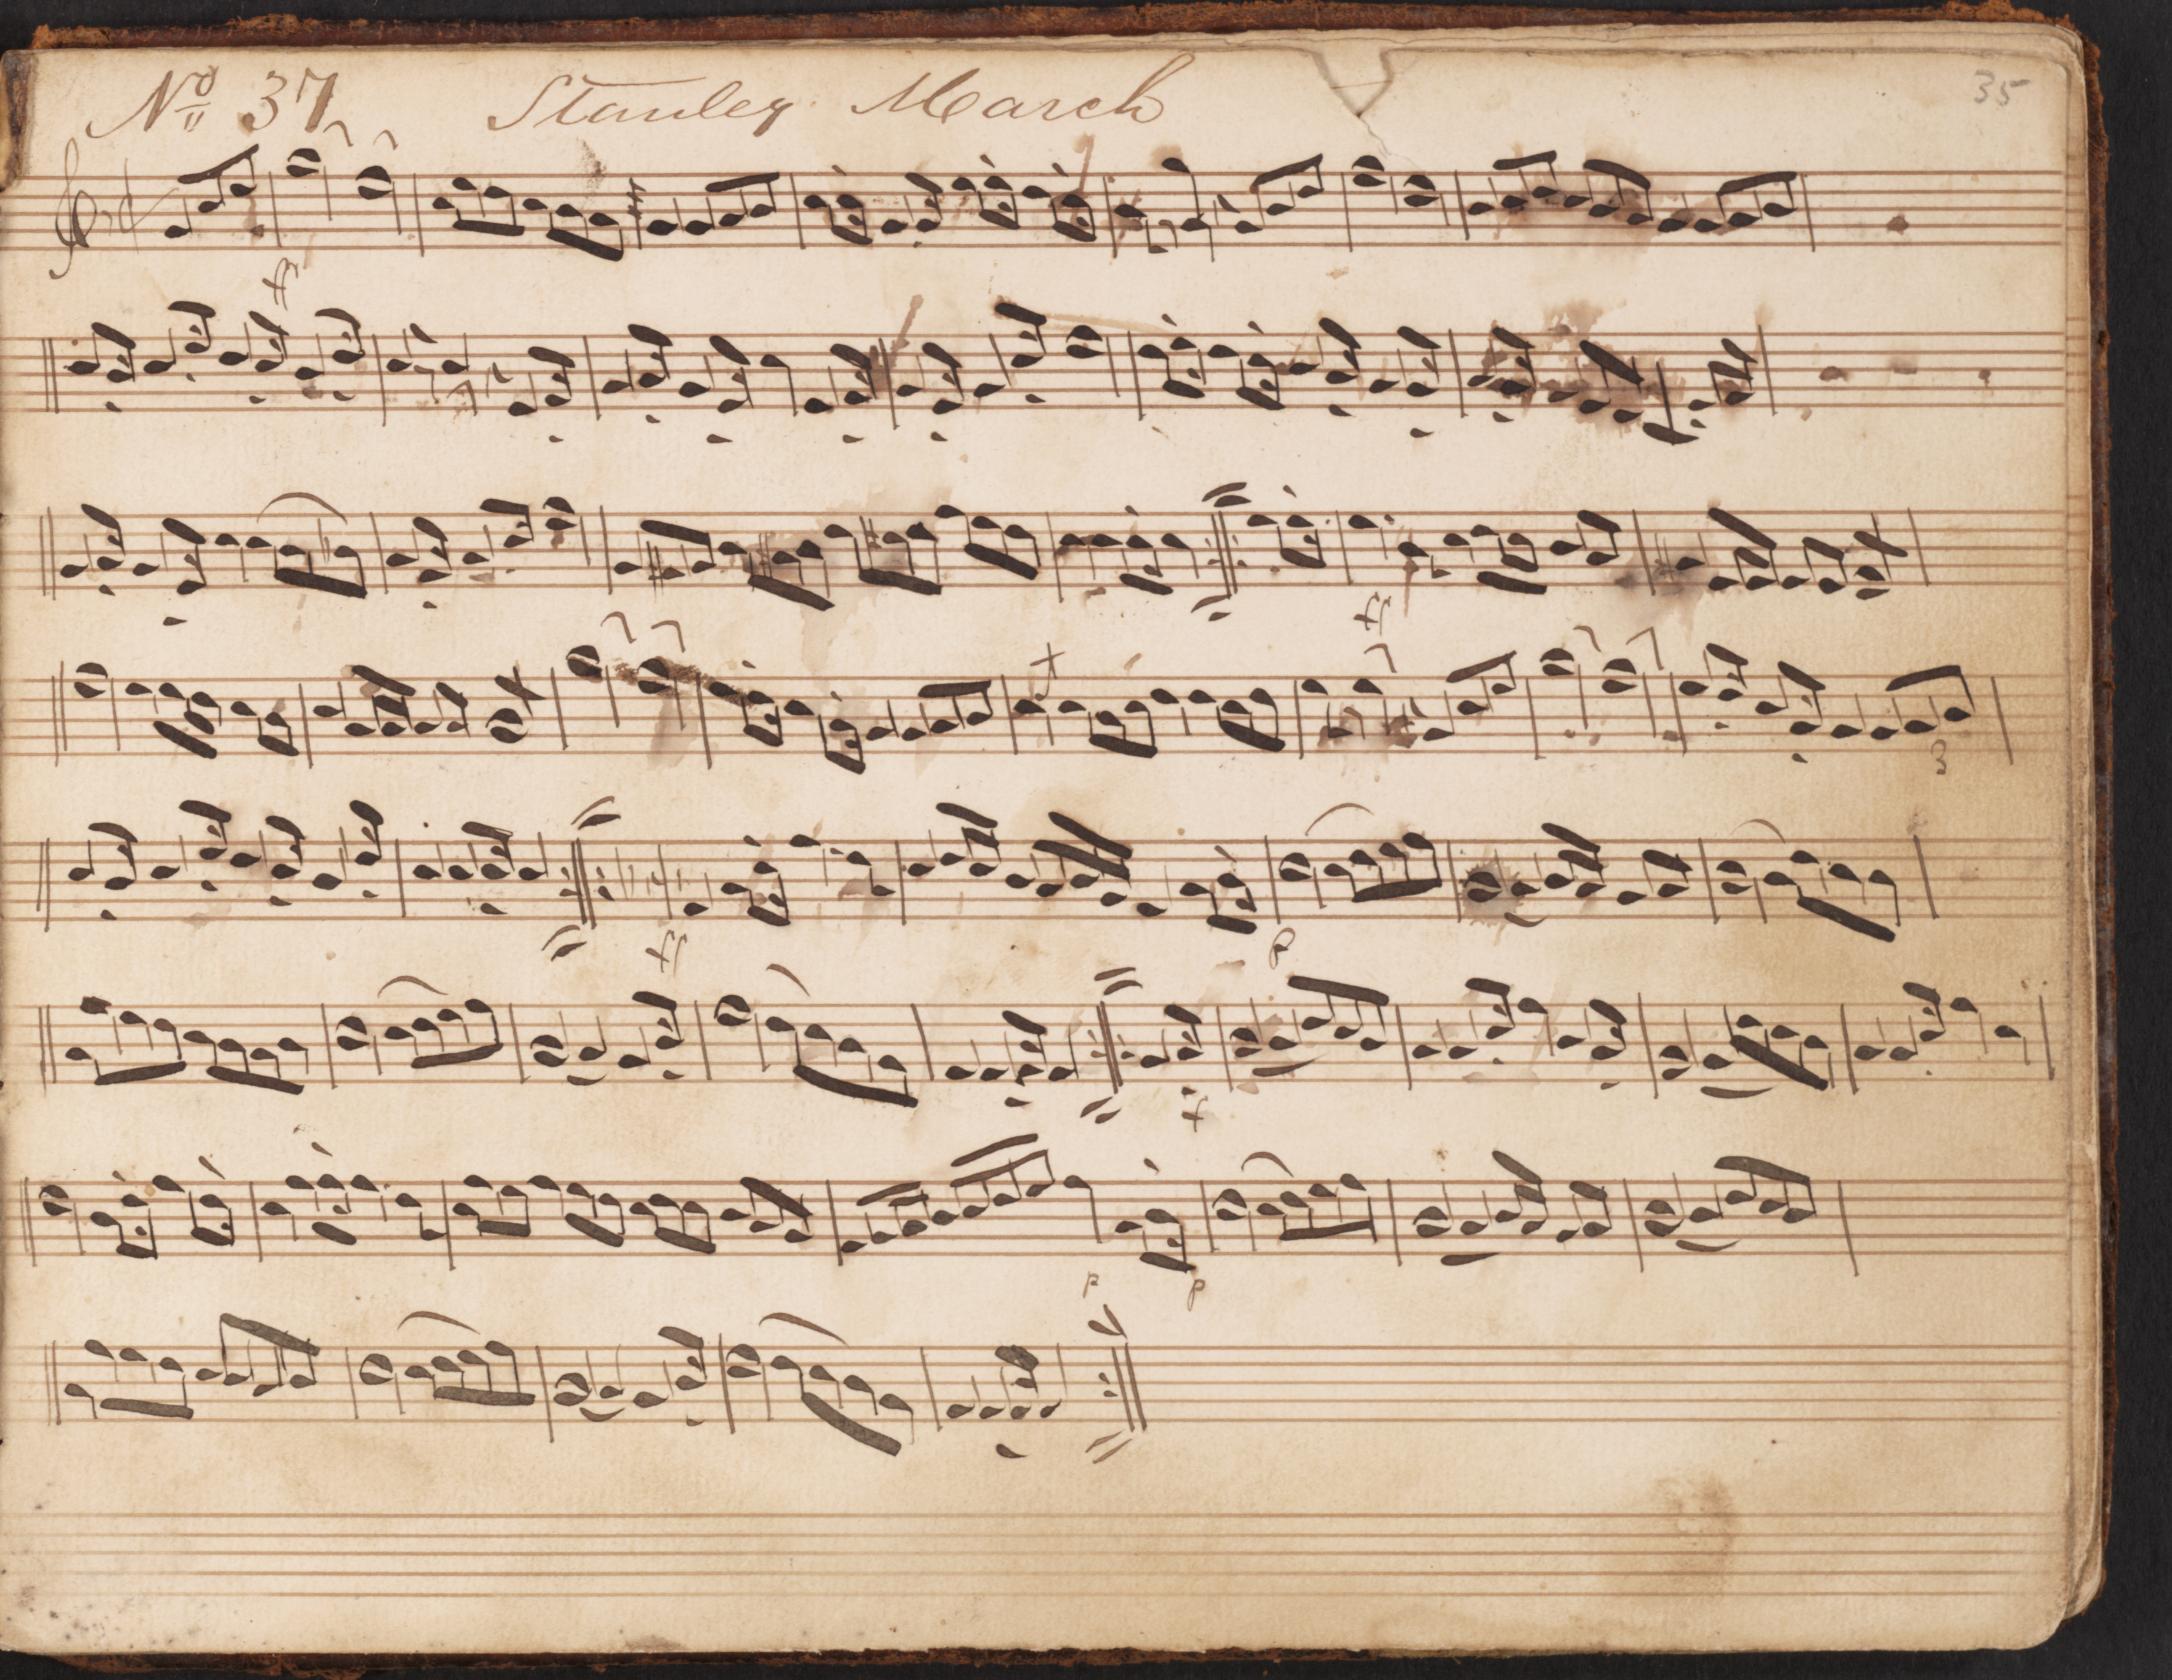 No 37 Stanley March 35
ff
ff
3
ff p
f
p p